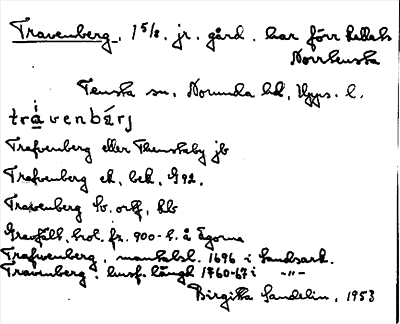 Travenberg, 1 5/8. jr. gård. har förr kallats
Norrtenska
Tensta sn. Norunda hd, Upps. l.
travenbärj
Trafvenberg eller Thenstaby jb
Trafvenberg ek. bek. G 92.
Travenberg Sv. ortf, kb
Gravfält, trol. fr. 900-t. å ägorna
Trafwenberg, mantalsl. 1696 i Landsark.
Travenberg, husf. längd 1760-67 i -"-
Birgitta Sandelin, 1953